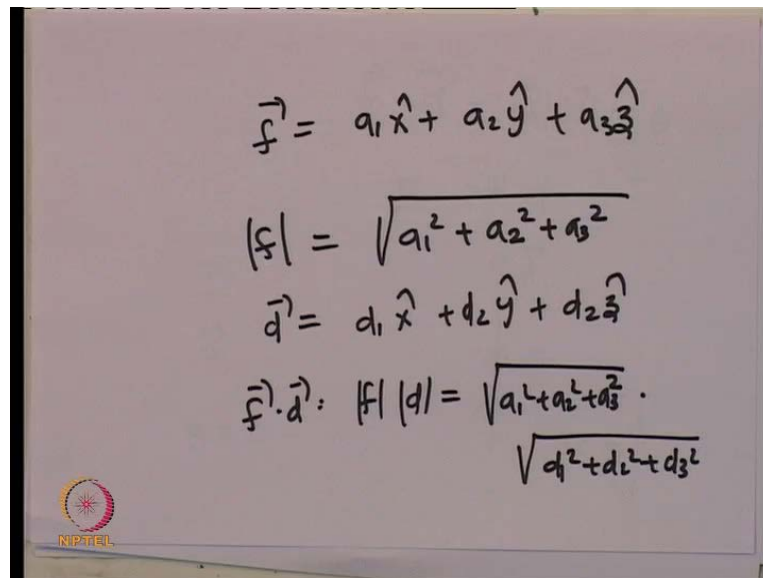 f⃗ = a₁x̂ + a₂ŷ + a₃ẑ
|f| = √(a₁² + a₂² + a₃²)
d⃗ = d₁x̂ + d₂ŷ + d₂ẑ
f⃗·d⃗ : |f| |d| = √(a₁² + a₂² + a₃²) ·
√(d₁² + d₂² + d₃²)
NPTEL